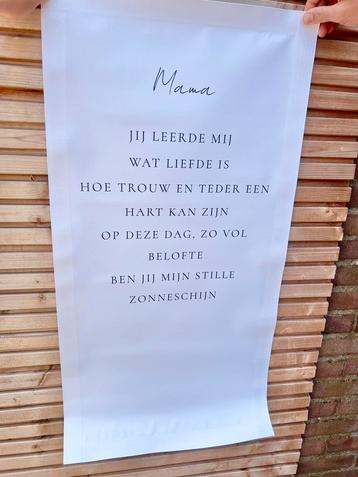 Mama
JIJ LEERDE MIJ
WAT LIEFDE IS
HOE TROUW EN TEDER EEN
HART KAN ZIJN
OP DEZE DAG, ZO VOL
BELOFTE
BEN JIJ MIJN STILLE
ZONNESCHIJN